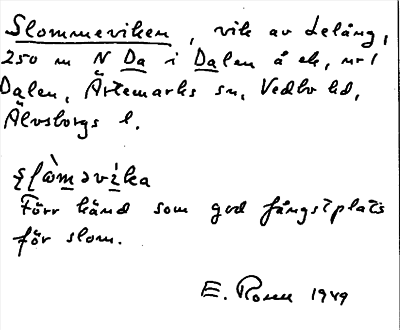 Slommeviken, vik av Lelång,
250 m N Da i Dalen å ek, nr 1
Dalen, Ärtemarks sn, Vedbo hd,
Älvsborgs l.
Förr känd som god fångstplats
för slom.
E. Rosell 1949